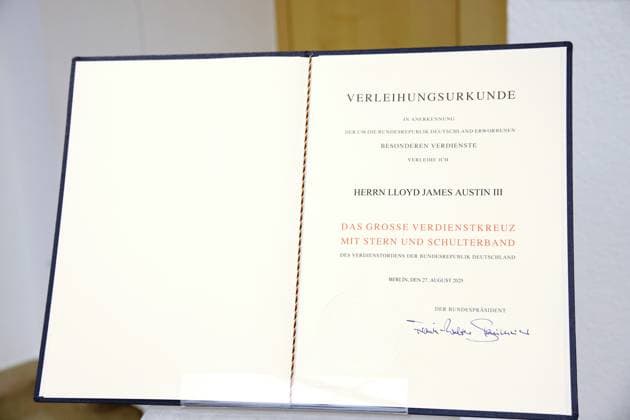 VERLEIHUNGSURKUNDE
IN ANERKENNUNG
DER UM DIE BUNDESREPUBLIK DEUTSCHLAND ERWORBENEN
BESONDEREN VERDIENSTE
VERLEIHE ICH
HERRN LLOYD JAMES AUSTIN III
DAS GROSSE VERDIENSTKREUZ
MIT STERN UND SCHULTERBAND
DES VERDIENSTORDENS DER BUNDESREPUBLIK DEUTSCHLAND
BERLIN, DEN 27. AUGUST 2025
DER BUNDESPRÄSIDENT
Frank-Walter Steinmeier